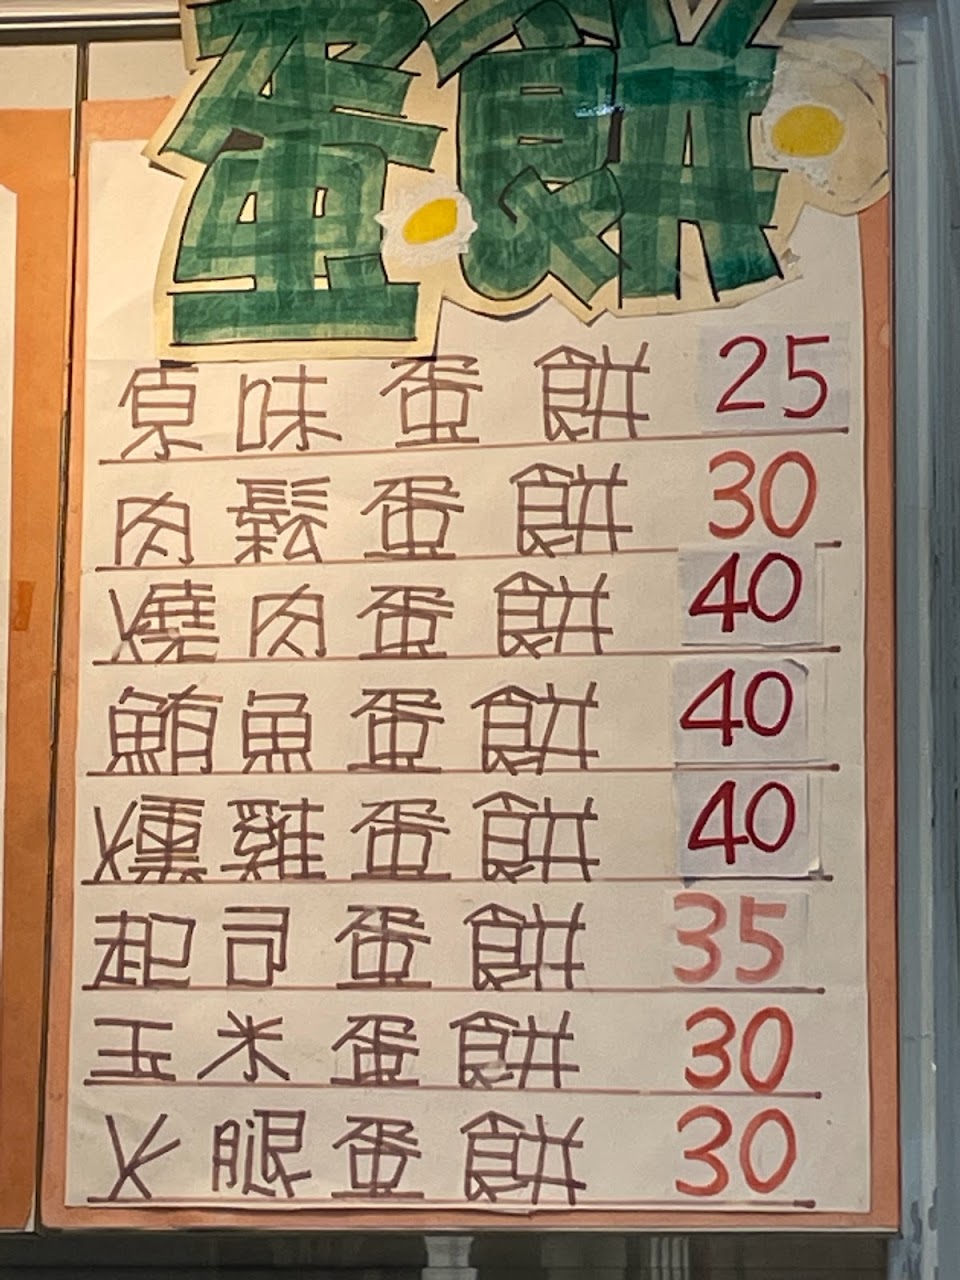 蛋餅
原味蛋餅 25
肉鬆蛋餅 30
燒肉蛋餅 40
鮪魚蛋餅 40
燻雞蛋餅 40
起司蛋餅 35
玉米蛋餅 30
火腿蛋餅 30